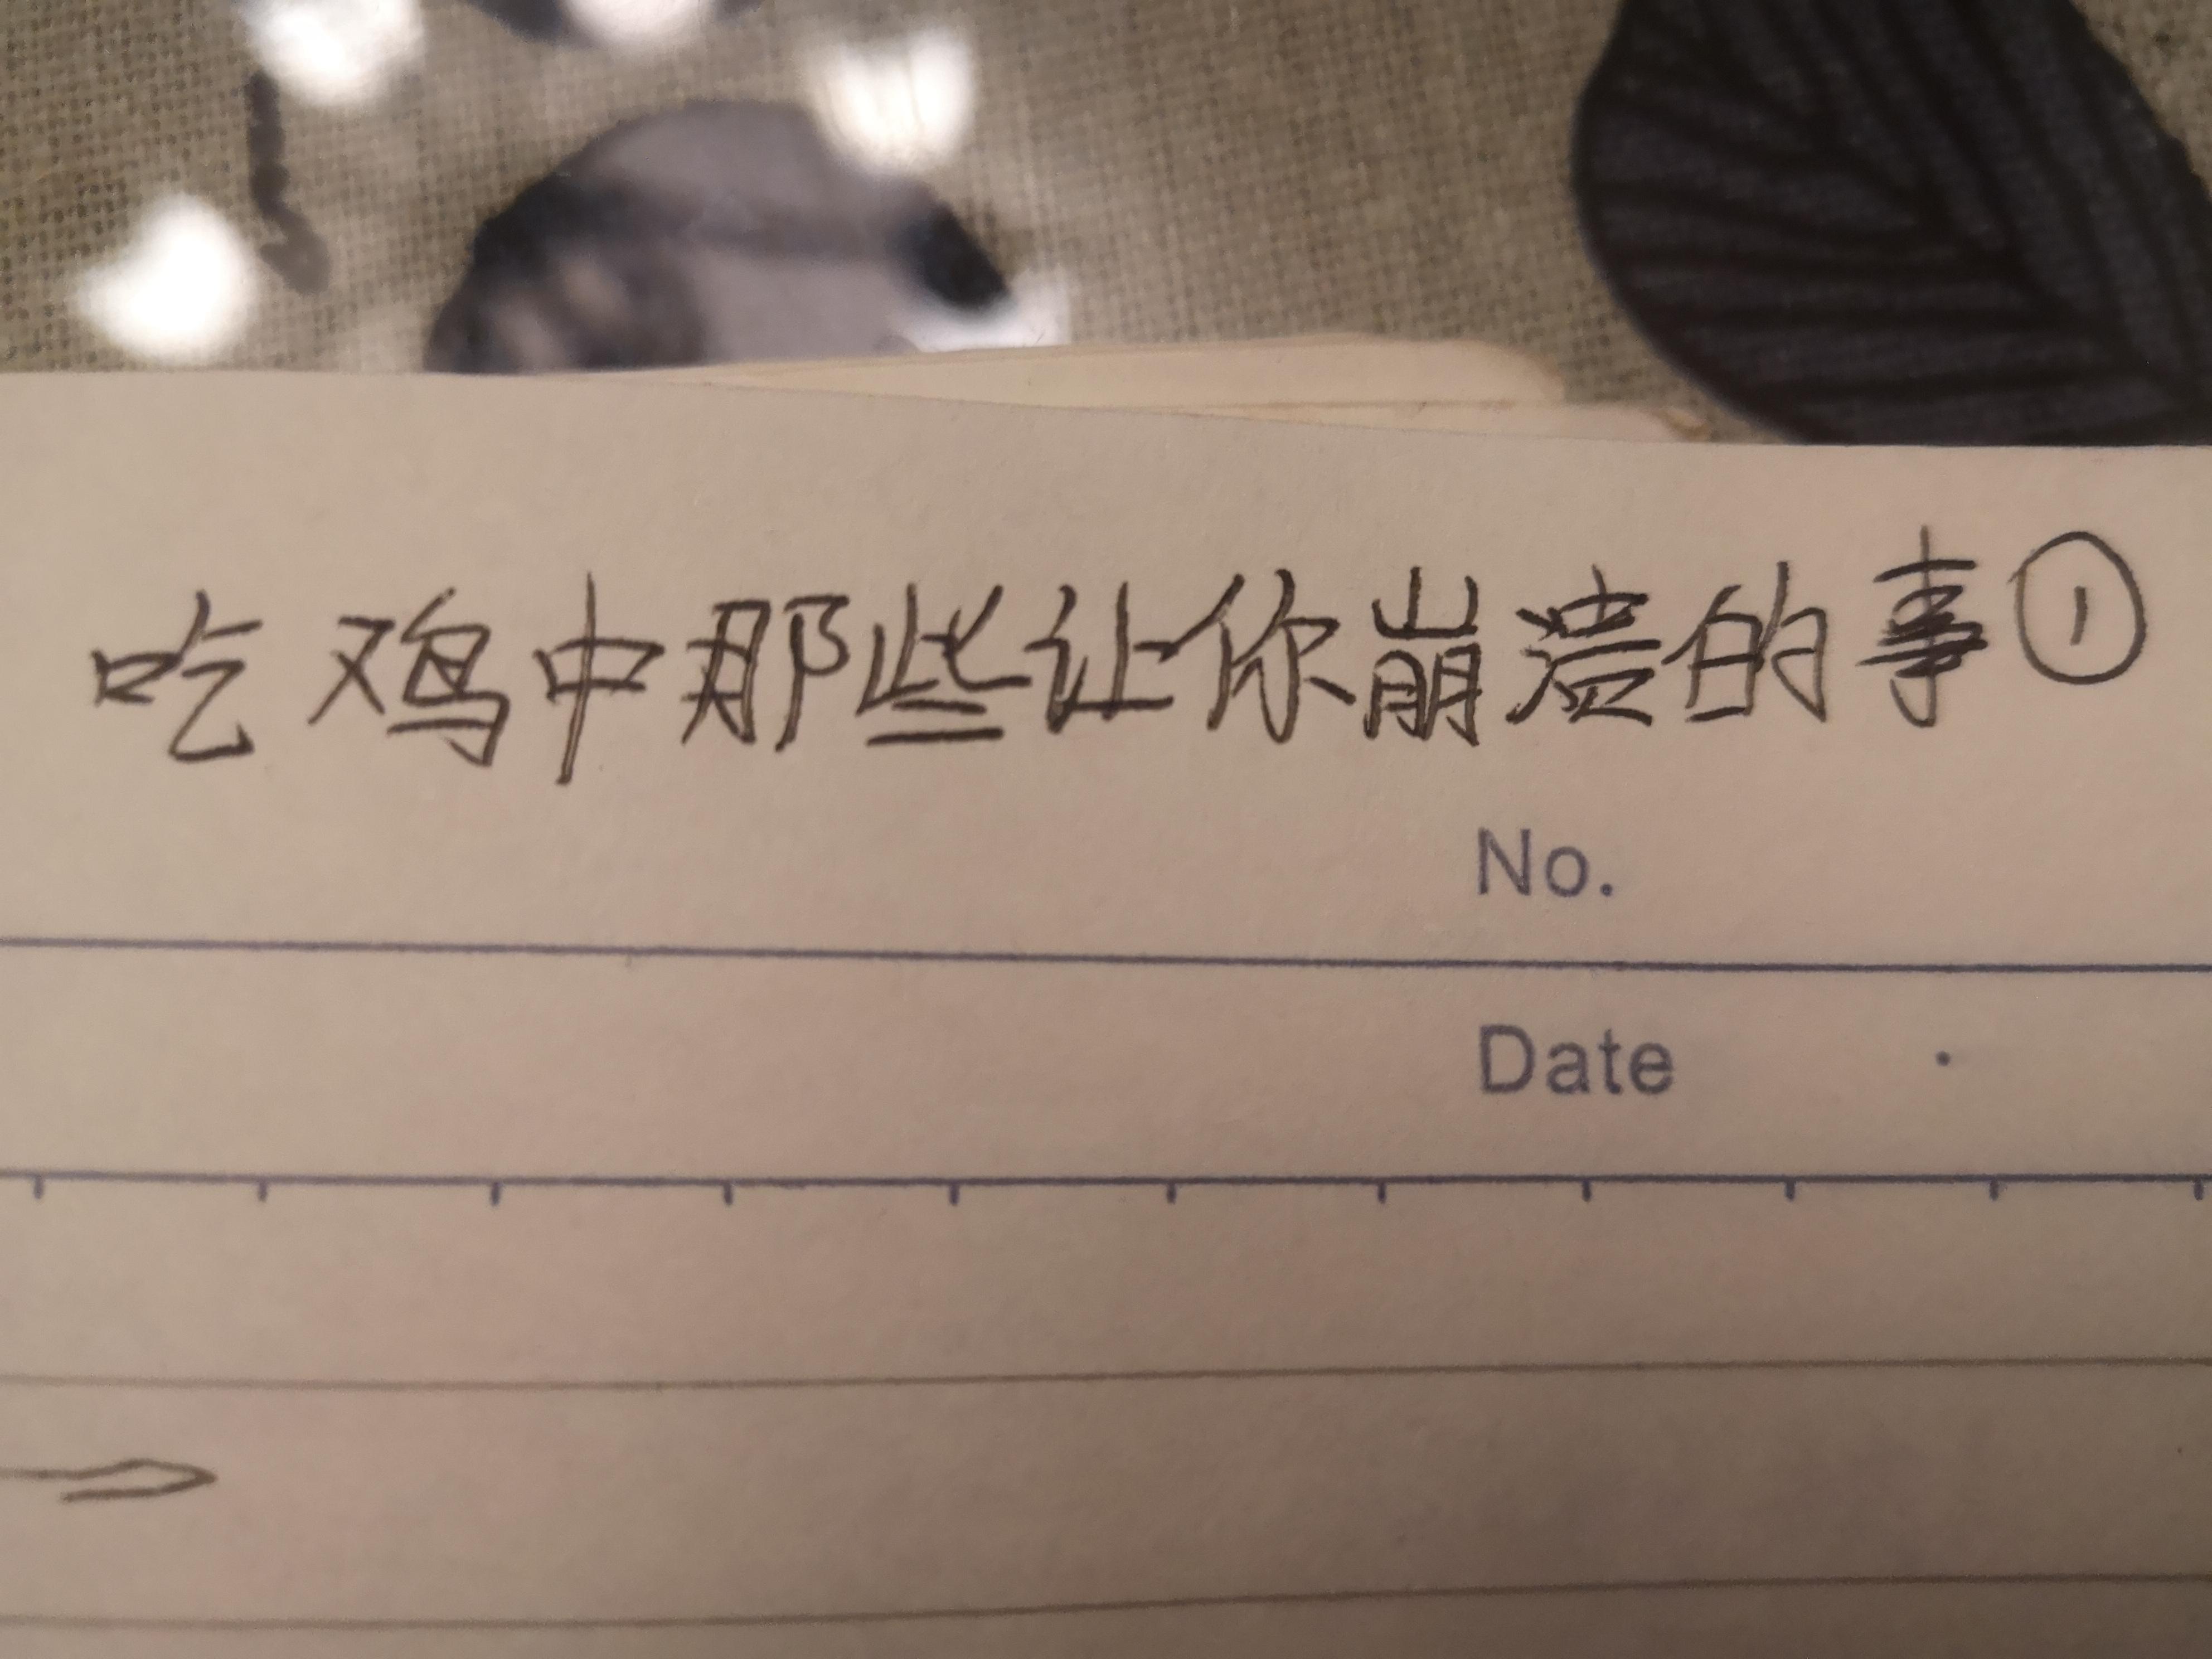 吃鸡中那些让你崩溃的事①
No.
Date